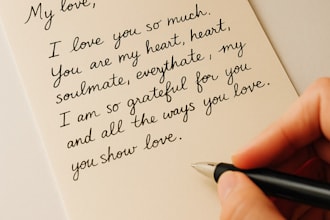 My love,
I love you so much.
You are my heart, heart,
soulmate, everythate, my
I am so grateful for you
and all the ways you love.
you show love.